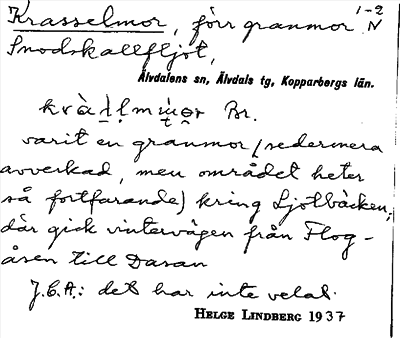 Krasselmor, förr granmor 1-2 N
Snodskallfljot,
Älvdalens sn, Älvdals tg, Kopparbergs län.
Br.
varit en granmor (sedermera
avverkad, men området heter
så fortfarande) kring Ljotbäcken;
där gick vintervägen från Flog-
åsen till Dasan
J.E.A.: det har inte velat.
HELGE LINDBERG 1937